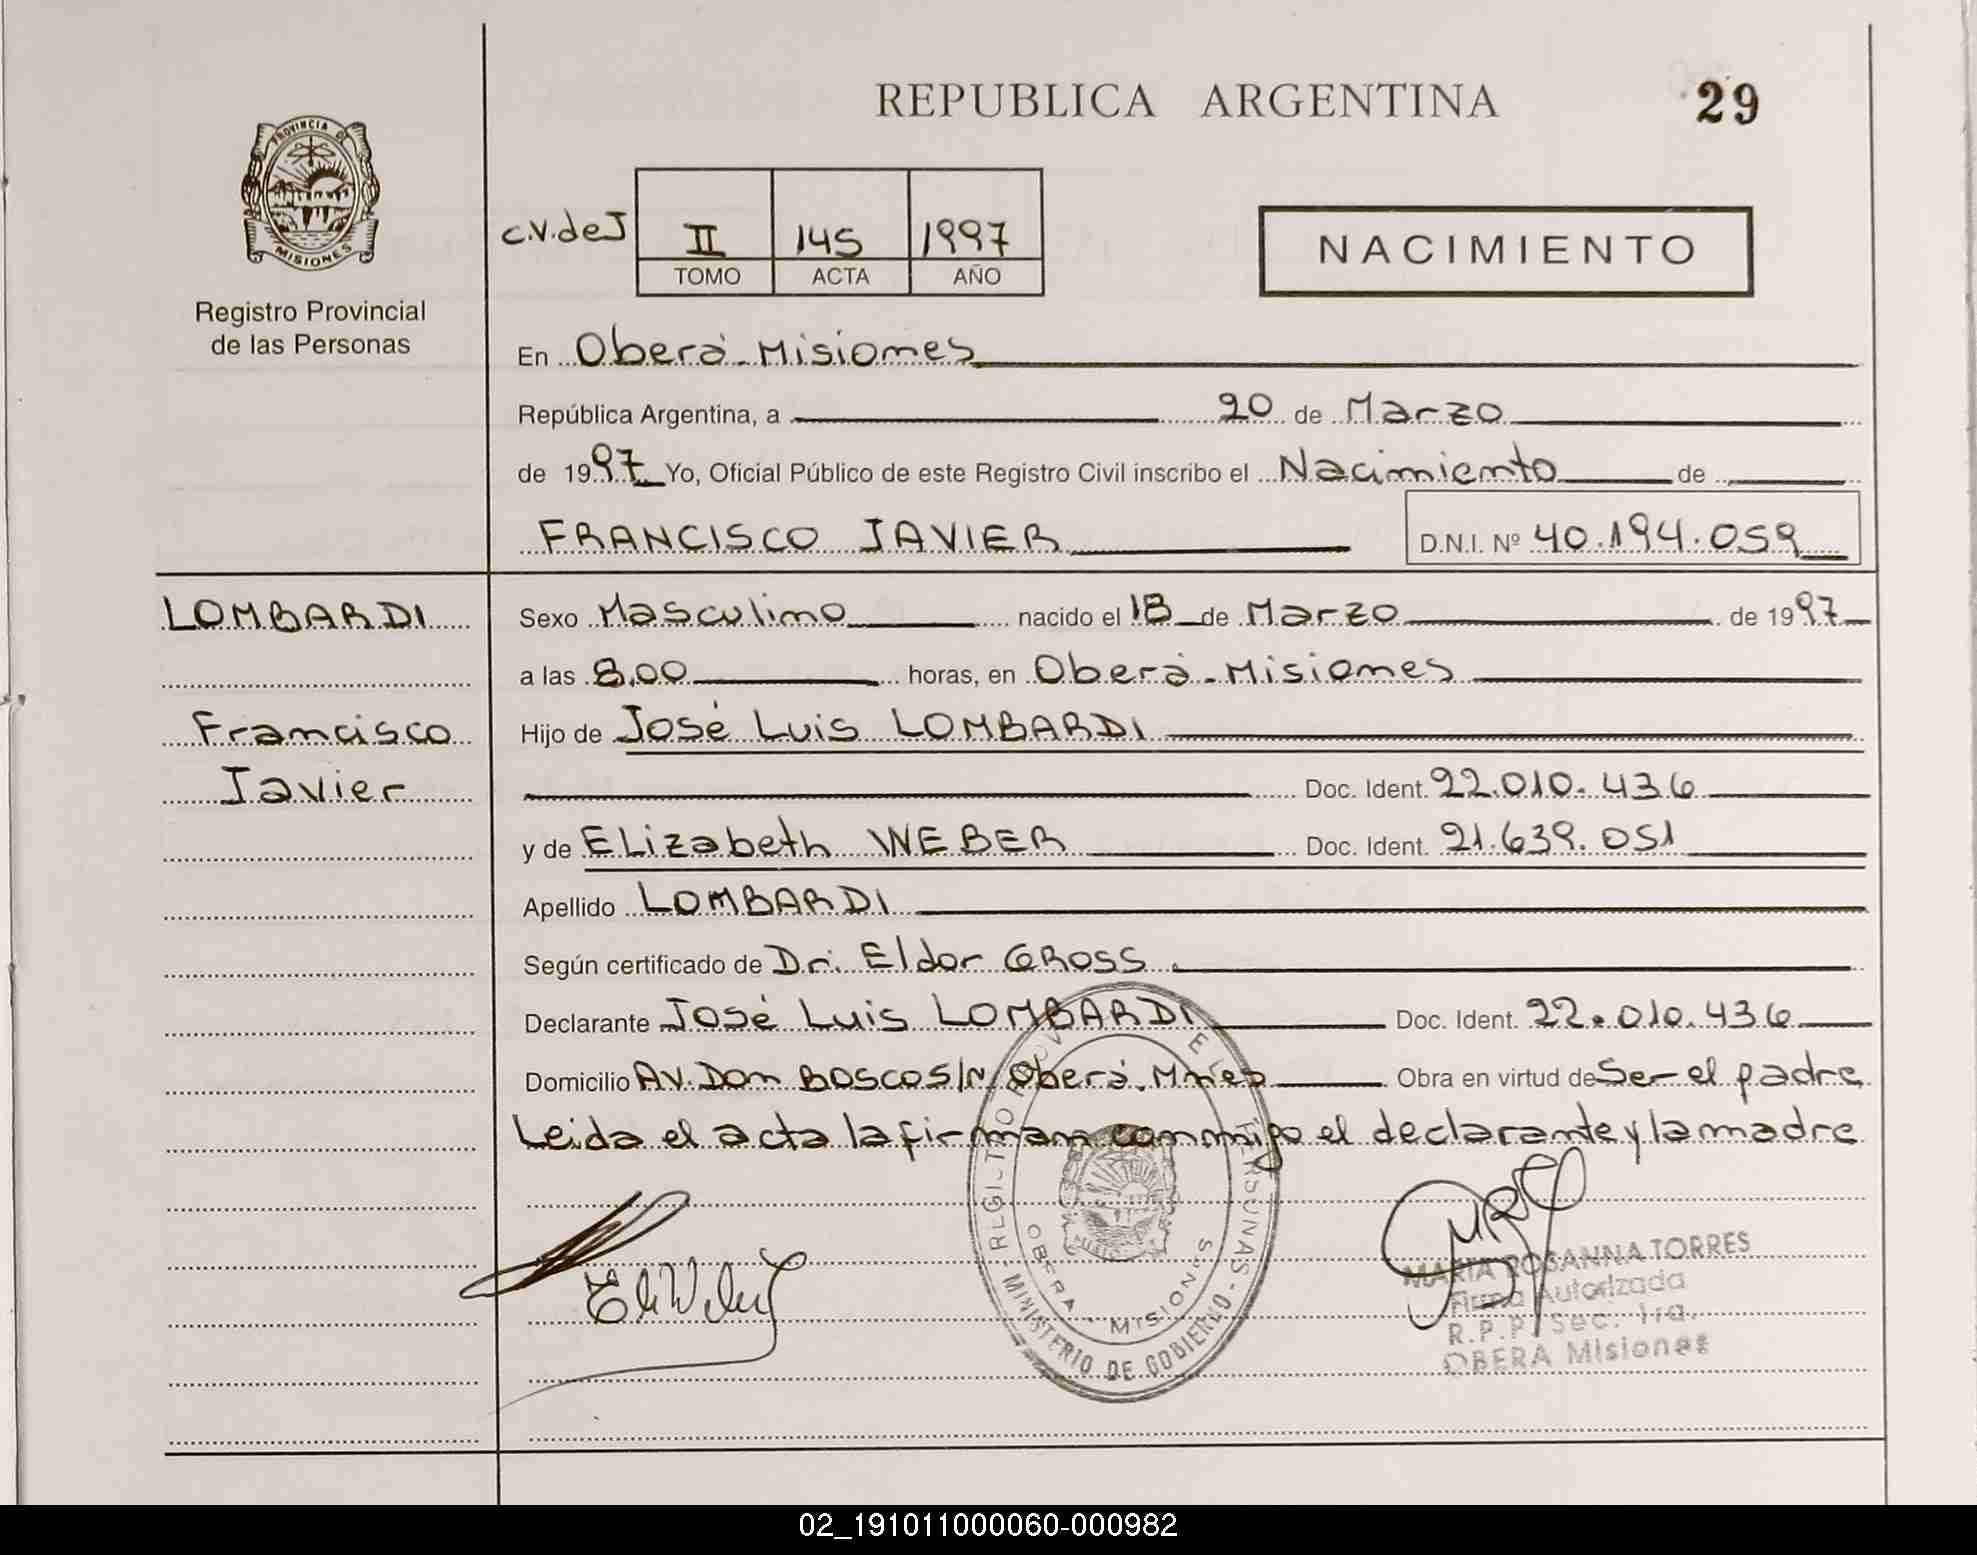 REPUBLICA ARGENTINA
29
PROVINCIA DE
MISIONES
Registro Provincial
de las Personas
C.V. de J
II 145 1997
TOMO ACTA AÑO
NACIMIENTO
En Oberá - Misiones
República Argentina, a 20 de Marzo
de 1997 Yo, Oficial Público de este Registro Civil inscribo el Nacimiento de
FRANCISCO JAVIER D.N.I. Nº 40.194.059
LOMBARDI
Francisco
Javier
Sexo Masculino nacido el 18 de Marzo de 1997
a las 8,00 horas, en Oberá - Misiones
Hijo de José Luis LOMBARDI
Doc. Ident. 22.010.436
y de ELizabeth WEBER Doc. Ident. 21.639.051
Apellido LOMBARDI
Según certificado de Dr. Eldor GROSS
Declarante José Luis LOMBARDI Doc. Ident. 22.010.436
Domicilio AV. Don BOSCO S/N Oberá. Mnes Obra en virtud de Ser el padre
Leida el acta la firman conmigo el declarante y la madre
MINISTERIO DE GOBIERNO
OBERA - MISIONES
MARIA ROSANNA TORRES
Firma Autorizada
R.P.P. Sec. 1ra.
OBERA Misiones
02_191011000060-000982